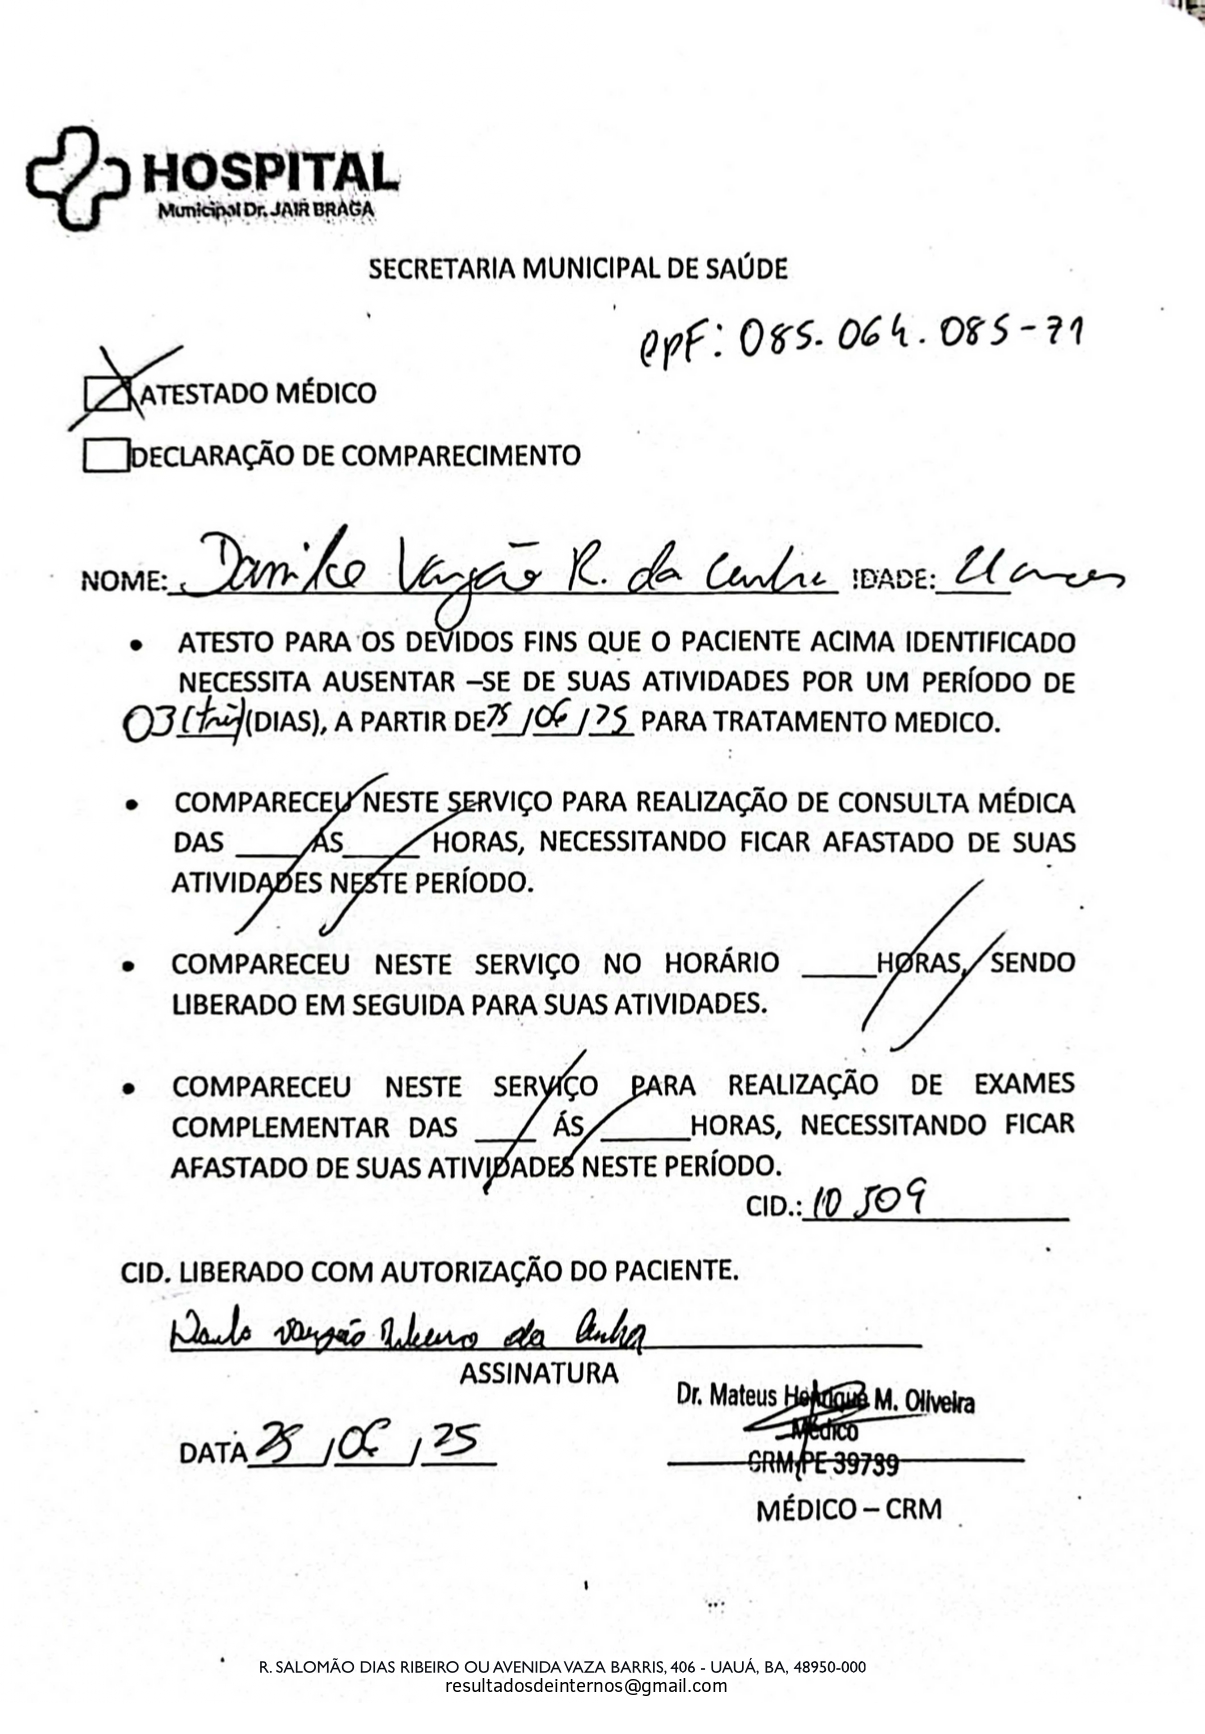 HOSPITAL
Municipal Dr. JAIR BRAGA
SECRETARIA MUNICIPAL DE SAÚDE
CPF: 085.064.085-71
ATESTADO MÉDICO
DECLARAÇÃO DE COMPARECIMENTO
NOME: Vargão R. da Cunha IDADE:
• ATESTO PARA OS DEVIDOS FINS QUE O PACIENTE ACIMA IDENTIFICADO
NECESSITA AUSENTAR –SE DE SUAS ATIVIDADES POR UM PERÍODO DE
03 (três) (DIAS), A PARTIR DE 25/06/25 PARA TRATAMENTO MEDICO.
• COMPARECEU NESTE SERVIÇO PARA REALIZAÇÃO DE CONSULTA MÉDICA
DAS ____ ÀS ____ HORAS, NECESSITANDO FICAR AFASTADO DE SUAS
ATIVIDADES NESTE PERÍODO.
• COMPARECEU NESTE SERVIÇO NO HORÁRIO ____ HORAS, SENDO
LIBERADO EM SEGUIDA PARA SUAS ATIVIDADES.
• COMPARECEU NESTE SERVIÇO PARA REALIZAÇÃO DE EXAMES
COMPLEMENTAR DAS ____ ÁS ____ HORAS, NECESSITANDO FICAR
AFASTADO DE SUAS ATIVIDADES NESTE PERÍODO.
CID.: 10 J09
CID. LIBERADO COM AUTORIZAÇÃO DO PACIENTE.
Vargão Ribeiro da Cunha
ASSINATURA
Dr. Mateus Henrique M. Oliveira
Médico
CRM/PE 39739
DATA 25/06/25
MÉDICO – CRM
R. SALOMÃO DIAS RIBEIRO OU AVENIDA VAZA BARRIS, 406 - UAUÁ, BA, 48950-000
resultadosdeinternos@gmail.com